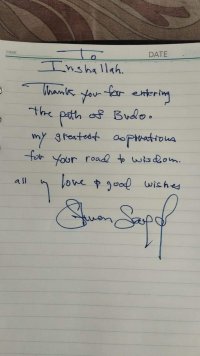 DATE
To
Inshallah.
Thank you for entering
the path of Budo.
my greatest aspirations
for your road to wisdom.
all my love & good wishes